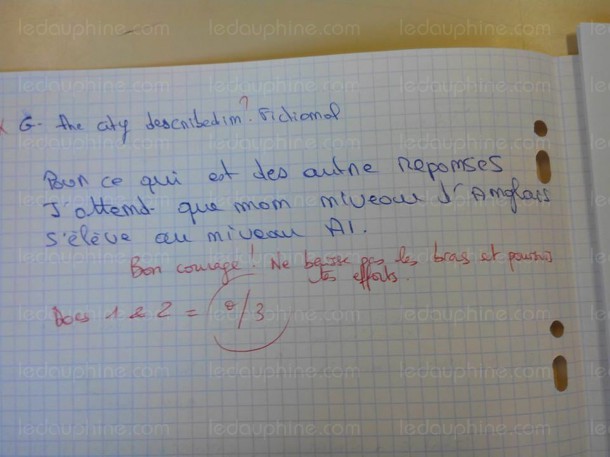 G- the city described in ? fictional
Pour ce qui est des autre reponses
J'attend que mon niveau d'Anglais
s'élève au niveau A1.
Bon courage ! Ne baisse pas les bras et poursuis
tes efforts.
Docs 1 & 2 = /3
ledauphine.com